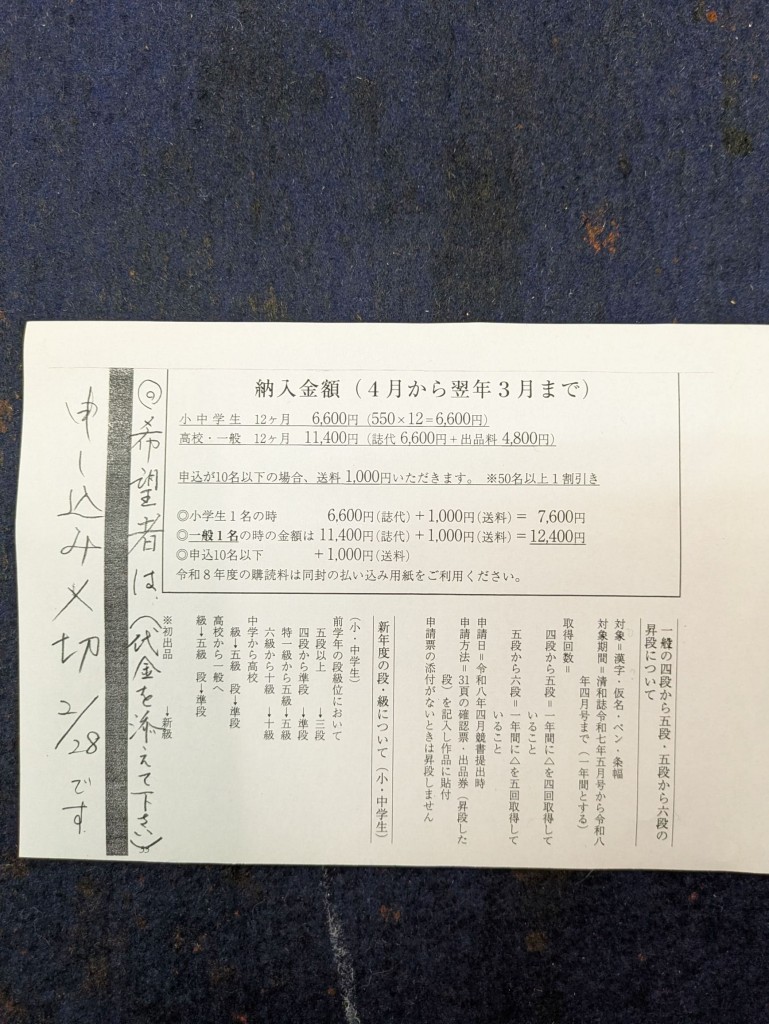 納入金額（４月から翌年３月まで）
小中学生　12ヶ月　6,600円（550×12＝6,600円）
高校・一般　12ヶ月　11,400円（誌代 6,600円＋出品料 4,800円）
申込が10名以下の場合、送料 1,000円いただきます。　※50名以上１割引き
◎小学生１名の時　6,600円（誌代）＋1,000円（送料）＝　7,600円
◎一般１名の時の金額は 11,400円（誌代）＋1,000円（送料）＝12,400円
◎申込10名以下　＋1,000円（送料）
令和８年度の購読料は同封の払い込み用紙をご利用ください。
一般の四段から五段・五段から六段の
昇段について
対象＝漢字・仮名・ペン・条幅
対象期間＝清和誌令和七年五月号から令和八
年四月号まで（一年間とする）
取得回数＝
四段から五段＝一年間に△を四回取得して
いること
五段から六段＝一年間に△を五回取得して
いること
申請日＝令和八年四月競書提出時
申請方法＝31頁の確認票・出品券（昇段した
段）を記入し作品に貼付
申請票の添付がないときは昇段しません
新年度の段・級について（小・中学生）
（小・中学生）
前学年の段級位において
五段以上　→三段
四段から準段　→準段
特一級から五級→五級
六級から十級　→十級
中学から高校
級→五級　段→準段
高校から一般へ
級→五級　段→準段
※初出品　→新級
◎希望者は、（代金を添えて下さい）
35
申し込み〆切 2/28です。